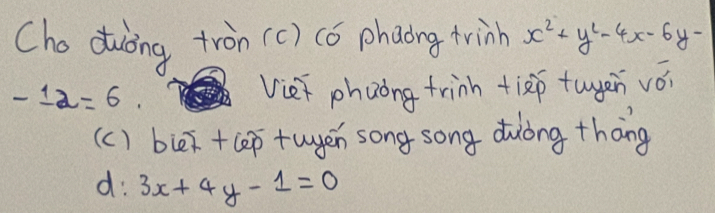 Cho đường tròn (C) có phương trình x² + y² - 4x - 6y -
- 12 = 6. Viết phương trình tiếp tuyến với
(C) biết tiếp tuyến song song đường thẳng
d: 3x + 4y - 1 = 0